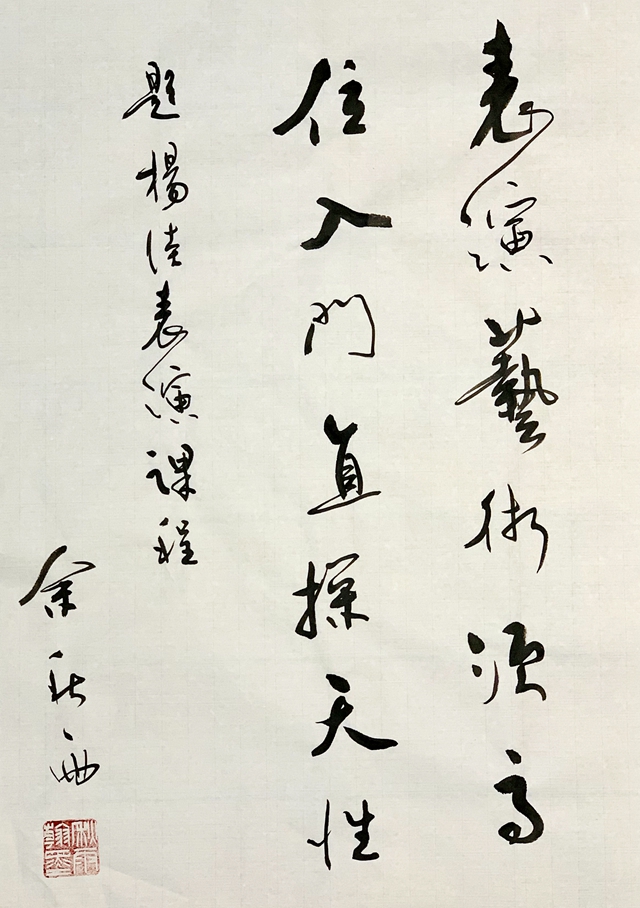 表演藝術須高
位入門直探天性
題楊佳表演課程
余秋雨
秋雨翰墨